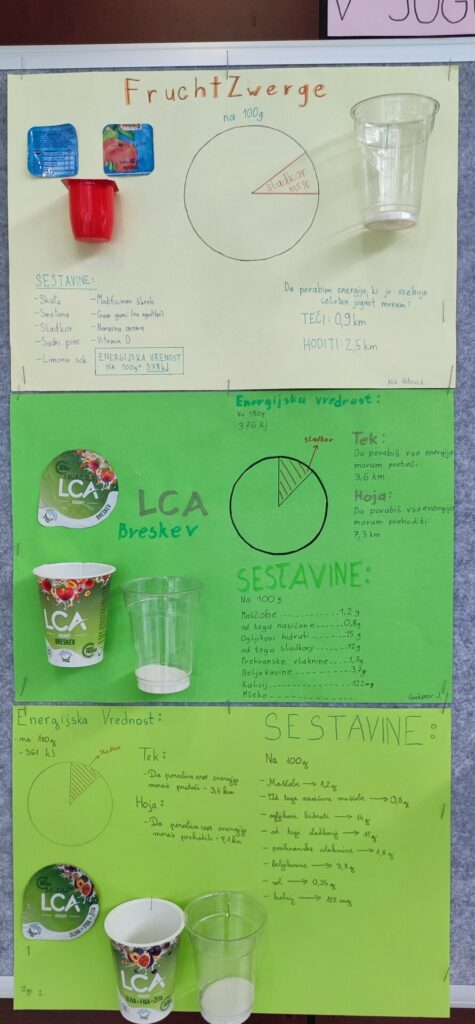 V JOGU
FruchtZwerge
na 100g
sladkor
10,5%
SESTAVINE:
- Skuta
- Smetana
- Sladkor
- Sadni pire
- Limonin sok
- Modificiran škrob
- Guar gumi
- Naravna aroma
- Vitamin D
ENERGIJSKA VREDNOST
NA 100g= 378kJ
Da porabim energijo, ki jo vsebuje
celoten jogurt moram:
TEČI: 0,9 km
HODITI: 2,5 km
Energijska vrednost:
Na 180g
376 kj
sladkor
Tek:
Da porabiš vso energijo
moram preteči:
3,6 km
Hoja:
Da porabiš vso energijo
moram prehoditi:
7,3 km
LCA
JOGURT
BRESKEV
LCA
Breskev
LCA
JOGURT
BRESKEV
SESTAVINE:
Na 100g
Maščobe 1,2 g
od tega nasičene 0,8g
Ogljikovi hidrati 15 g
od tega sladkorji 12g
Prehranske vlaknine 1,7g
Beljakovine 3,7g
Kalcij 122mg
Mleko
Gašper J.
Energijska Vrednost:
- na 180g
- 361 kJ
sladkor
Tek:
- Da porabim vso energijo
moraš preteči - 3,4 km
Hoja:
- Da porabim vso energijo
moraš prehoditi - 7,1 km
SESTAVINE:
Na 100g
- Maščobe → 1,2g
- Od tega nasičene maščobe → 0,8g
- ogljikovi hidrati → 14g
- od tega sladkorji → 11g
- prehranske vlaknine → 1,8g
- beljakovine → 3,8g
- sol → 0,25g
- kalcij → 122 mg
LCA
JOGURT
SLIVA • FIGA • ŽITA
LCA
SLIVA • FIGA • ŽITA